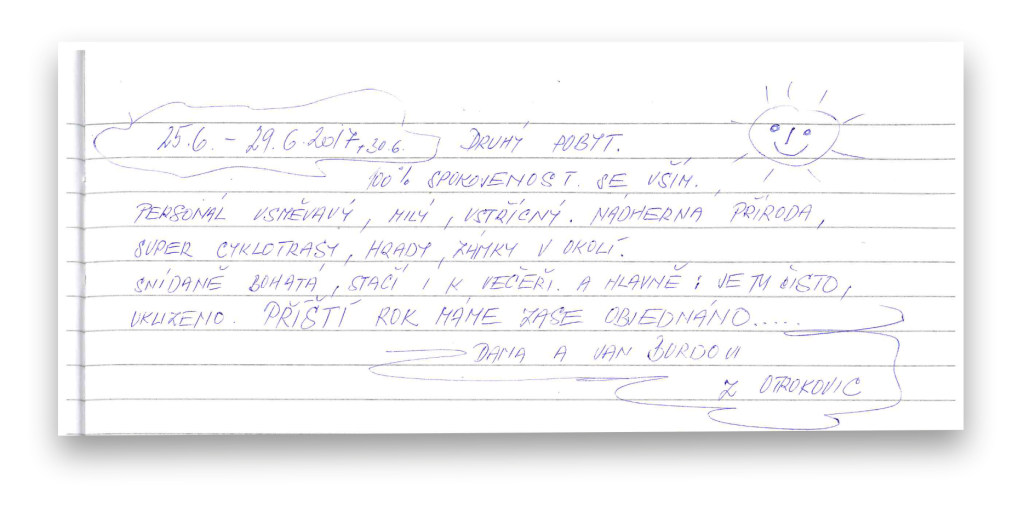 25.6. - 29.6.2017, 30.6. DRUHÝ POBYT.
100% SPOKOJENOST. SE VŠÍM.
PERSONÁL USMĚVAVÝ, MILÝ, VSTŘÍCNÝ. NÁDHERNÁ PŘÍRODA,
SUPER CYKLOTRASY, HRADY, ZÁMKY V OKOLÍ.
SNÍDANĚ BOHATÁ, STAČÍ I K VEČEŘI. A HLAVNĚ: JE TU ČISTO,
UKLIZENO. PŘÍŠTÍ ROK MÁME ZASE OBJEDNÁNO.....
DANA A JAN BURDOVI
Z OTROKOVIC